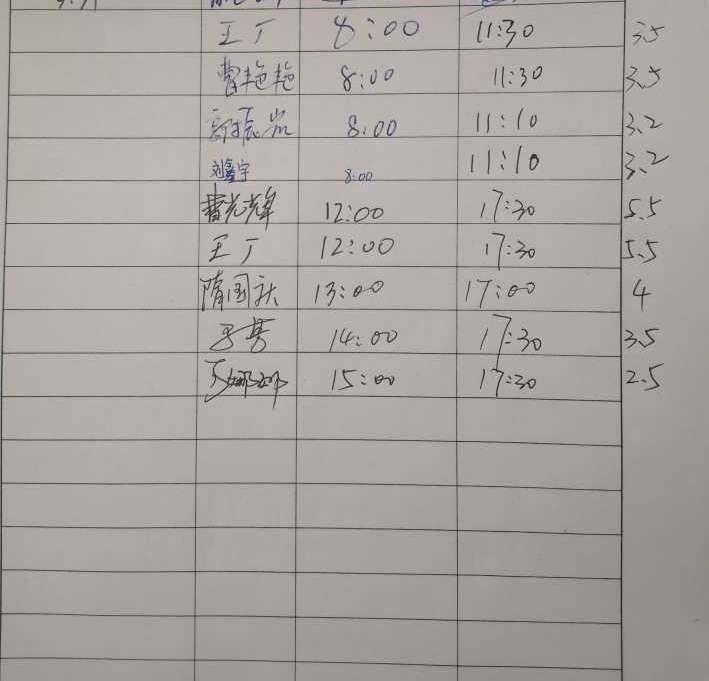 王丁 8:00 11:30 3.5
曹艳艳 8:00 11:30 3.5
郭振岩 8:00 11:10 3.2
刘鑫宇 8:00 11:10 3.2
曹光辉 12:00 17:30 5.5
王丁 12:00 17:30 5.5
隋国跃 13:00 17:00 4
14:00 17:30 3.5
娜娜 15:00 17:30 2.5